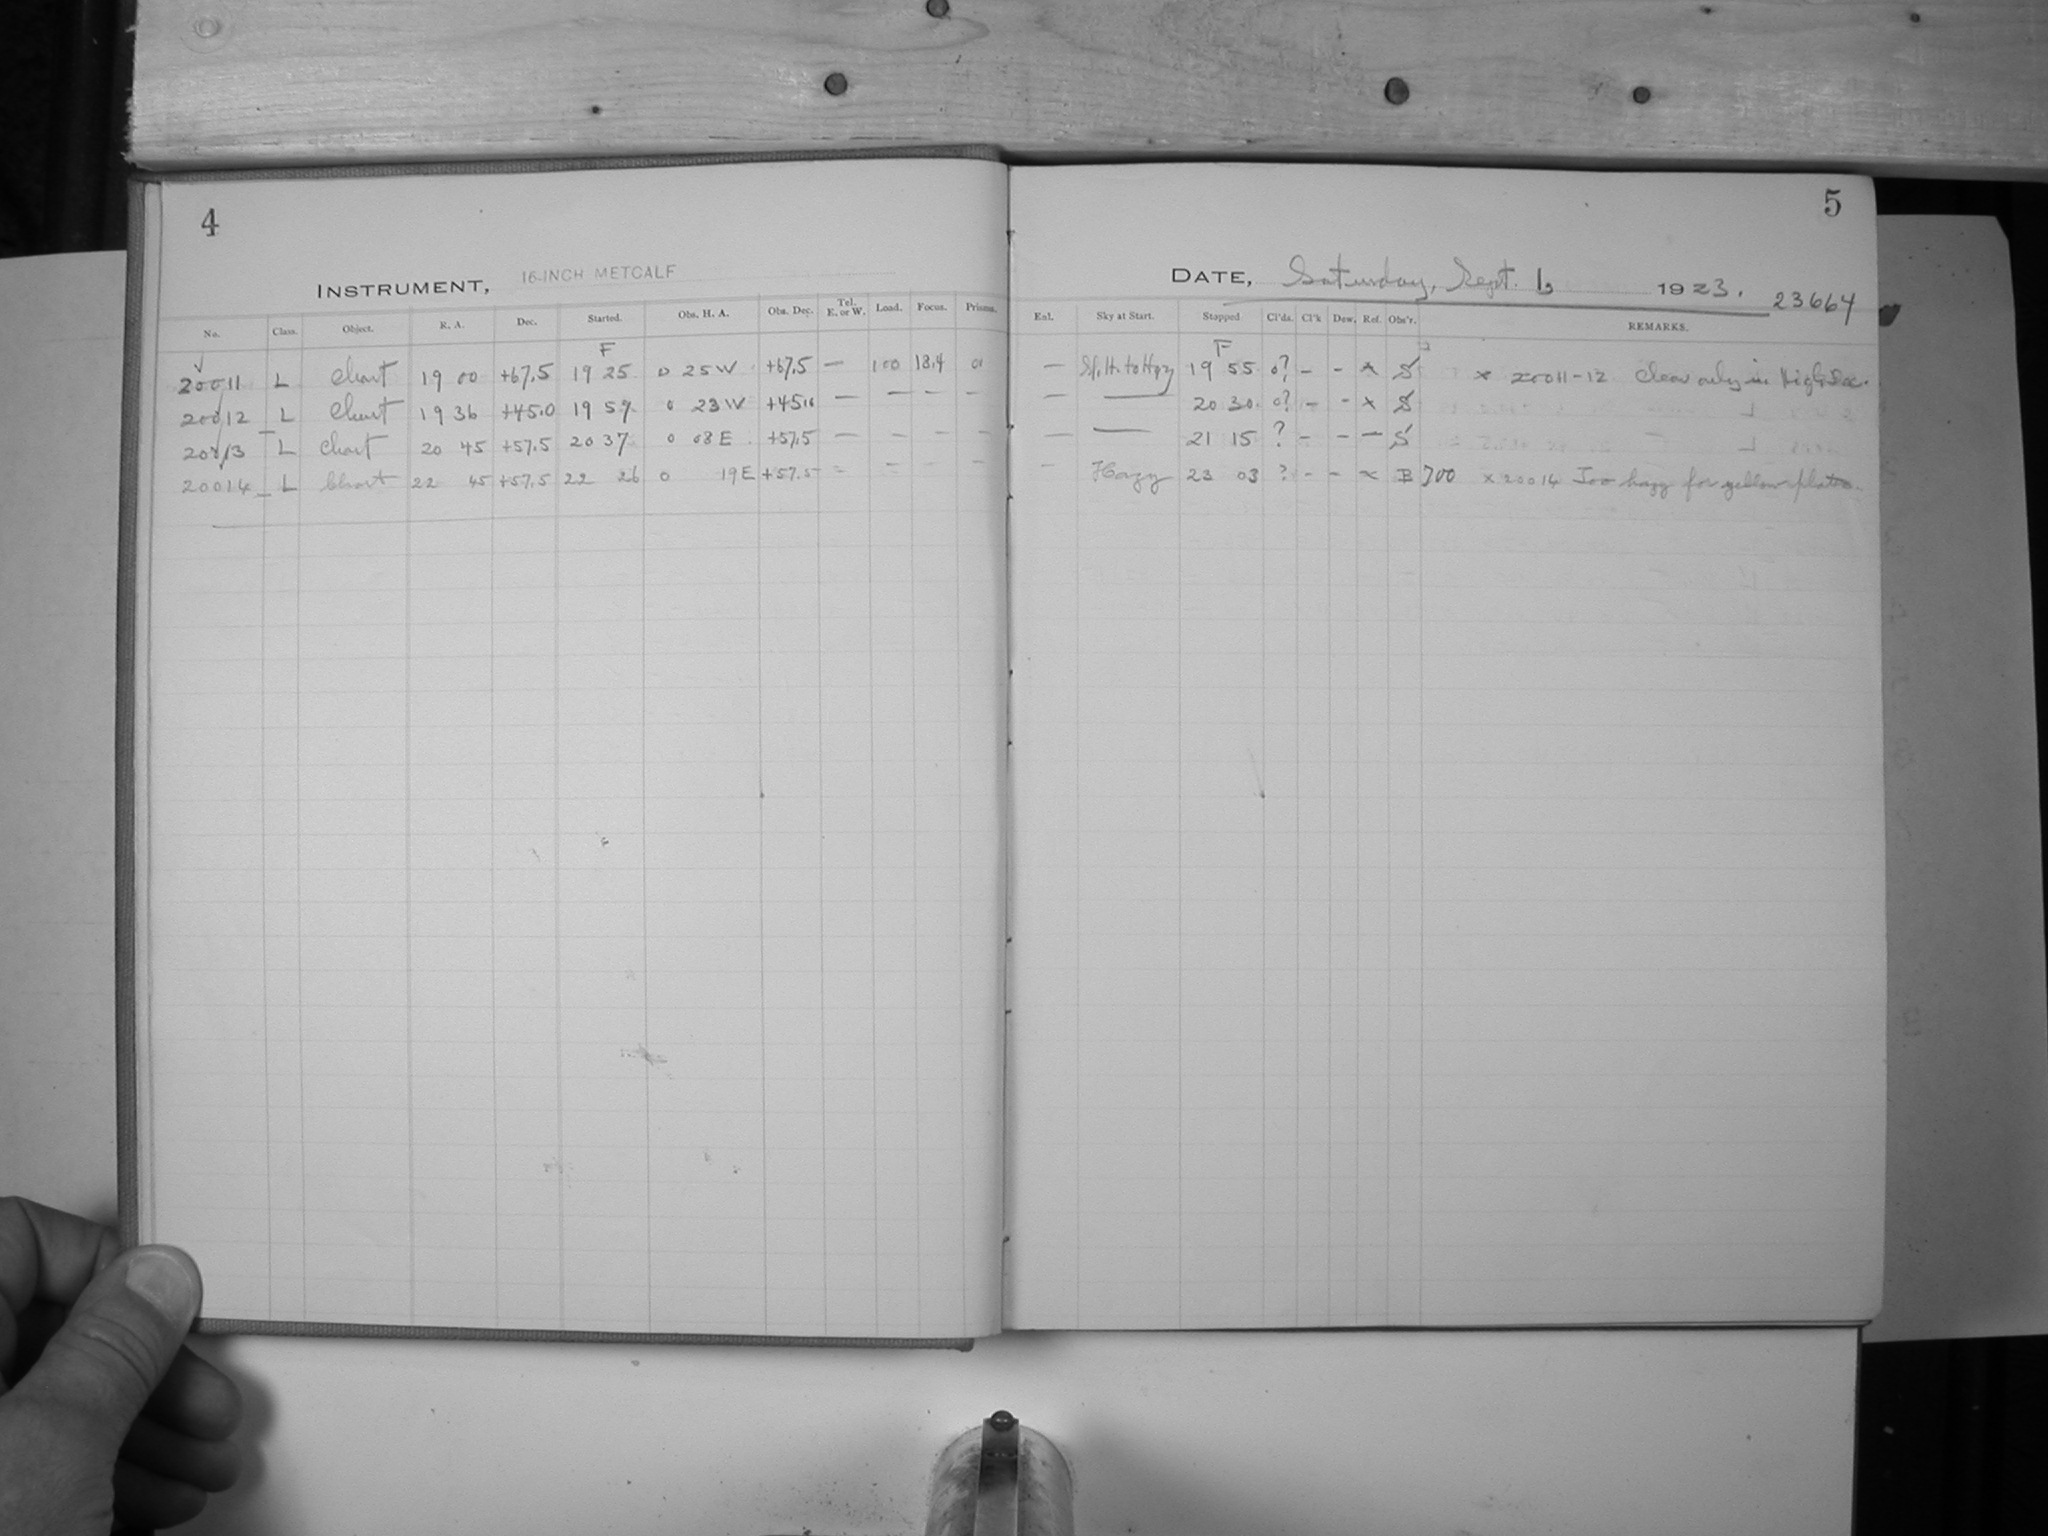 4
INSTRUMENT, 16-INCH METCALF
No. Class. Object. R. A. Dec. Started. Obs. H. A. Obs. Dec. Tel. E. or W. Load. Focus. Prisms.
F
20011 L Chart 19 00 +67.5 19 25 0 25 W +67.5 — 100 18.4 0
20012 L Chart 19 36 +45.0 19 59 0 23 W +45.0 — — — —
20013 L Chart 20 45 +57.5 20 37 0 08 E +57.5 — — — —
20014 L Chart 22 45 +57.5 22 26 0 19 E +57.5 = = - -
5
DATE, Saturday, Sept. 1, 1923. 23664
Enl. Sky at Start. Stopped Cl'ds. Cl'k Dew. Ref. Obs'r. REMARKS.
F
— Sl. H. to Hzy 19 55 0? - - x S x 20011-12 Clear only in High Dec.
— — 20 30 0? - - x S
— — 21 15 ? - - — S
- Hazy 23 03 ? - - x B 700 x 20014 Too hazy for yellow plate.